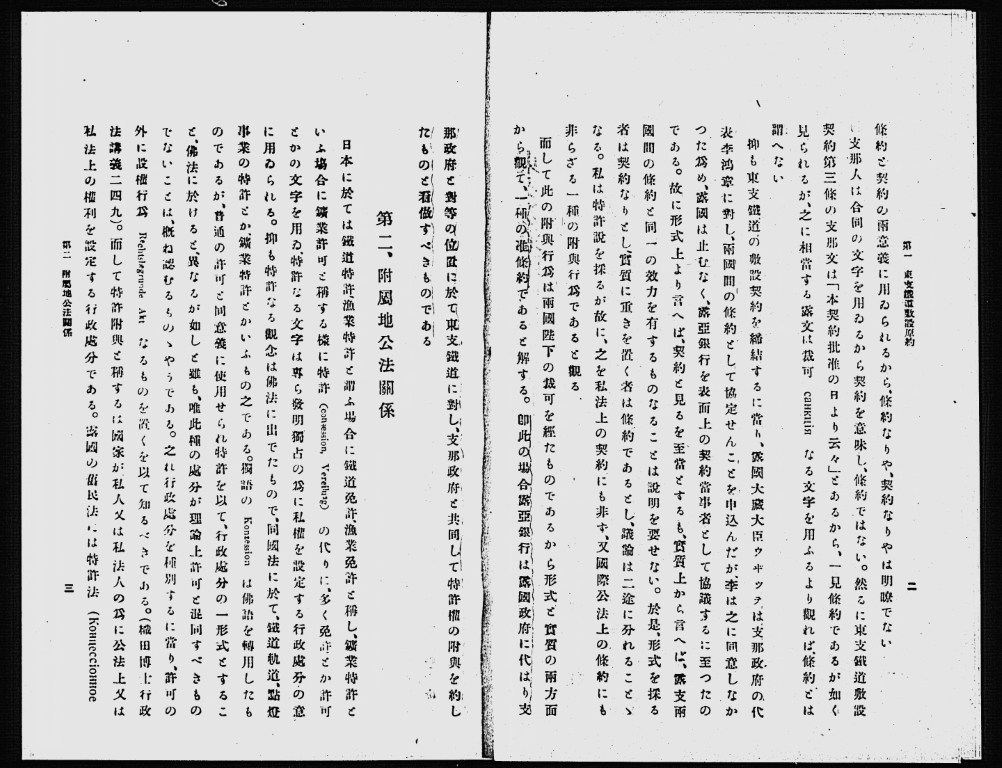 第一　東支鐵道敷設原約
二
條約と契約の兩意義に用ゐられるから、條約なりや、契約なりやは明瞭でない
支那人は合同の文字を用ゐるから契約を意味し、條約ではない。然るに東支鐵道敷設
契約第三條の支那文は「本契約批准の日より云々」とあるから、一見條約であるが如く
見られるが、之に相當する露文は裁可 санкція なる文字を用ふるより觀れば、條約とは
謂へない
抑も東支鐵道の敷設契約を締結するに當り、露國大藏大臣ウヰッテは支那政府の代
表李鴻章に對し、兩國間の條約として協定せんことを申込んだが、李は之に同意しなか
つた爲め、露國は止むなく、露亞銀行を表面上の契約當事者として協議するに至つたの
である。故に形式上より言へば、契約と見るを至當とするも、實質上から言へば、露支兩
國間の條約と同一の效力を有するものなることは說明を要せない。於是、形式を採る
者は契約なりとし、實質に重きを置く者は條約であるとし、議論は二途に分れることゝ
なる。私は特許說を採るが故に、之を私法上の契約にも非ず、又國際公法上の條約にも
非らざる一種の附與行爲であると觀る
而して此の附與行爲は兩國陛下の裁可を經たものであるから形式と實質の兩方面
から觀て、一種の准條約であると解する。卽此の場合露亞銀行は露國政府に代はり支
那政府と對等の位置に於て東支鐵道に對し、支那政府と共同して特許權の附與を約し
たものと看做すべきものである
第二、附屬地公法關係
日本に於ては鐵道特許漁業特許と謂ふ場合に鐵道免許、漁業免許と稱し、鑛業特許と
いふ場合に鑛業許可と稱する樣に特許 (concession, Verellung) の代りに、多く免許とか許可
とかの文字を用ゐ特許なる文字は專ら發明獨占の爲に私權を設定する行政處分の意
に用ゐられる。抑も特許なる觀念は佛法に出でたもので、同國法に於て、鐵道軌道、點燈
事業の特許とか鑛業特許とかいふもの之である。獨語の Konzession は佛語を轉用したも
のであるが、普通の許可と同意義に使用せられ特許を以て、行政處分の一形式とするこ
と、佛法に於けると、異なるが如しと雖も、唯此種の處分が理論上許可と混同すべきもの
でないことは、槪ね認むるものゝやうである。之れ行政處分を種別するに當り、許可の
外に設權行爲 Rechtsbegründe Akt なるものを置くを以て知るべきである。(織田博士行政
法講義二四九)。而して特許附與と稱するは國家が私人又は私法人の爲に公法上又は
私法上の權利を設定する行政處分である。露國の舊民法には特許法 (Концессіонное
第二　附屬地公法關係
三